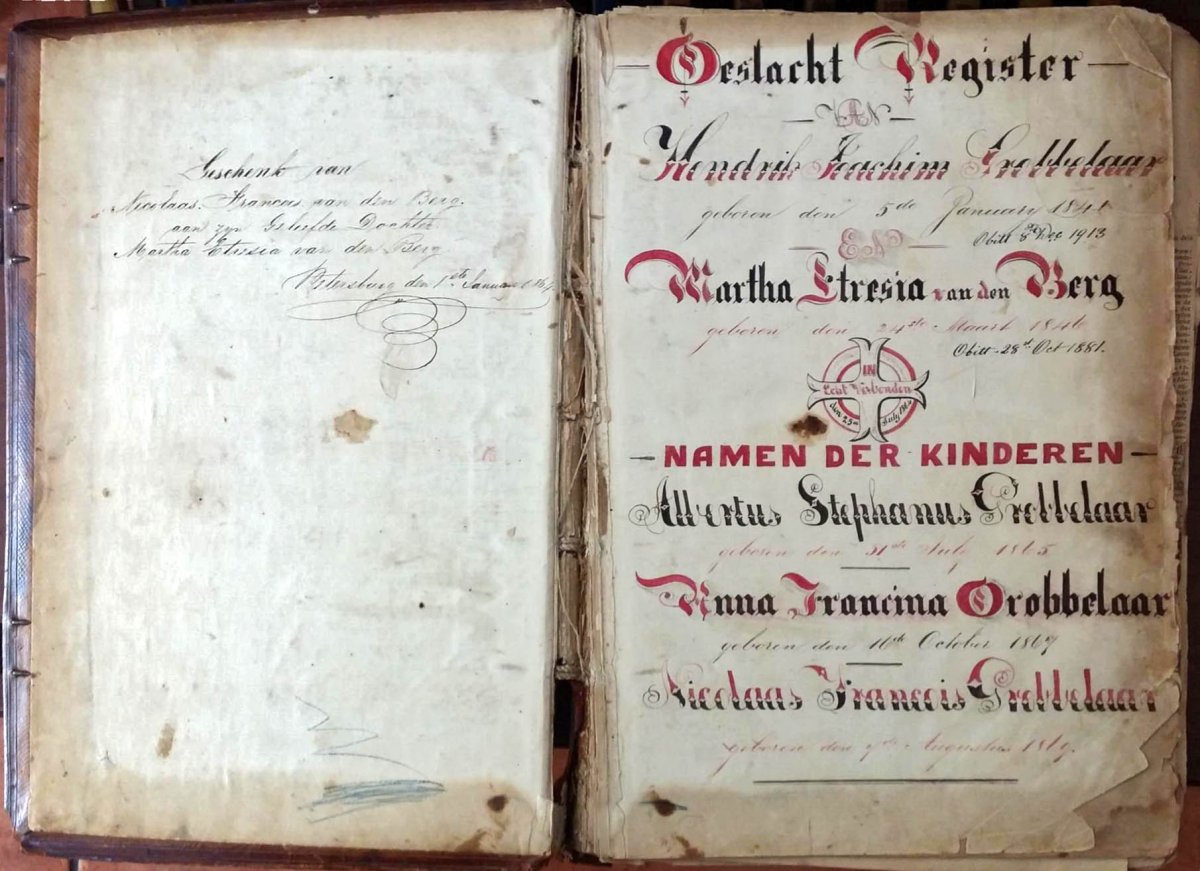 Geschenk van
Nicolaas Francois van den Berg.
aan zyn Geliefde Dochter
Martha Etresia van den Berg
Petersburg den 1ste Januari
Geslacht Register
VAN
Hendrik Joachim Grobbelaar
geboren den 5de January 1841
Obiit 8th Dec 1913
EN
Martha Etresia van den Berg
geboren den 24ste Maart 1846
Obiit 28st Oct 1881.
IN
Echt Verbonden
den 25n July
NAMEN DER KINDEREN
Albertus Stephanus Grobbelaar
geboren den 31ste July 1865
Anna Francina Grobbelaar
geboren den 16de October 1867
Nicolaas Francois Grobbelaar
geboren den Augustus 1869.